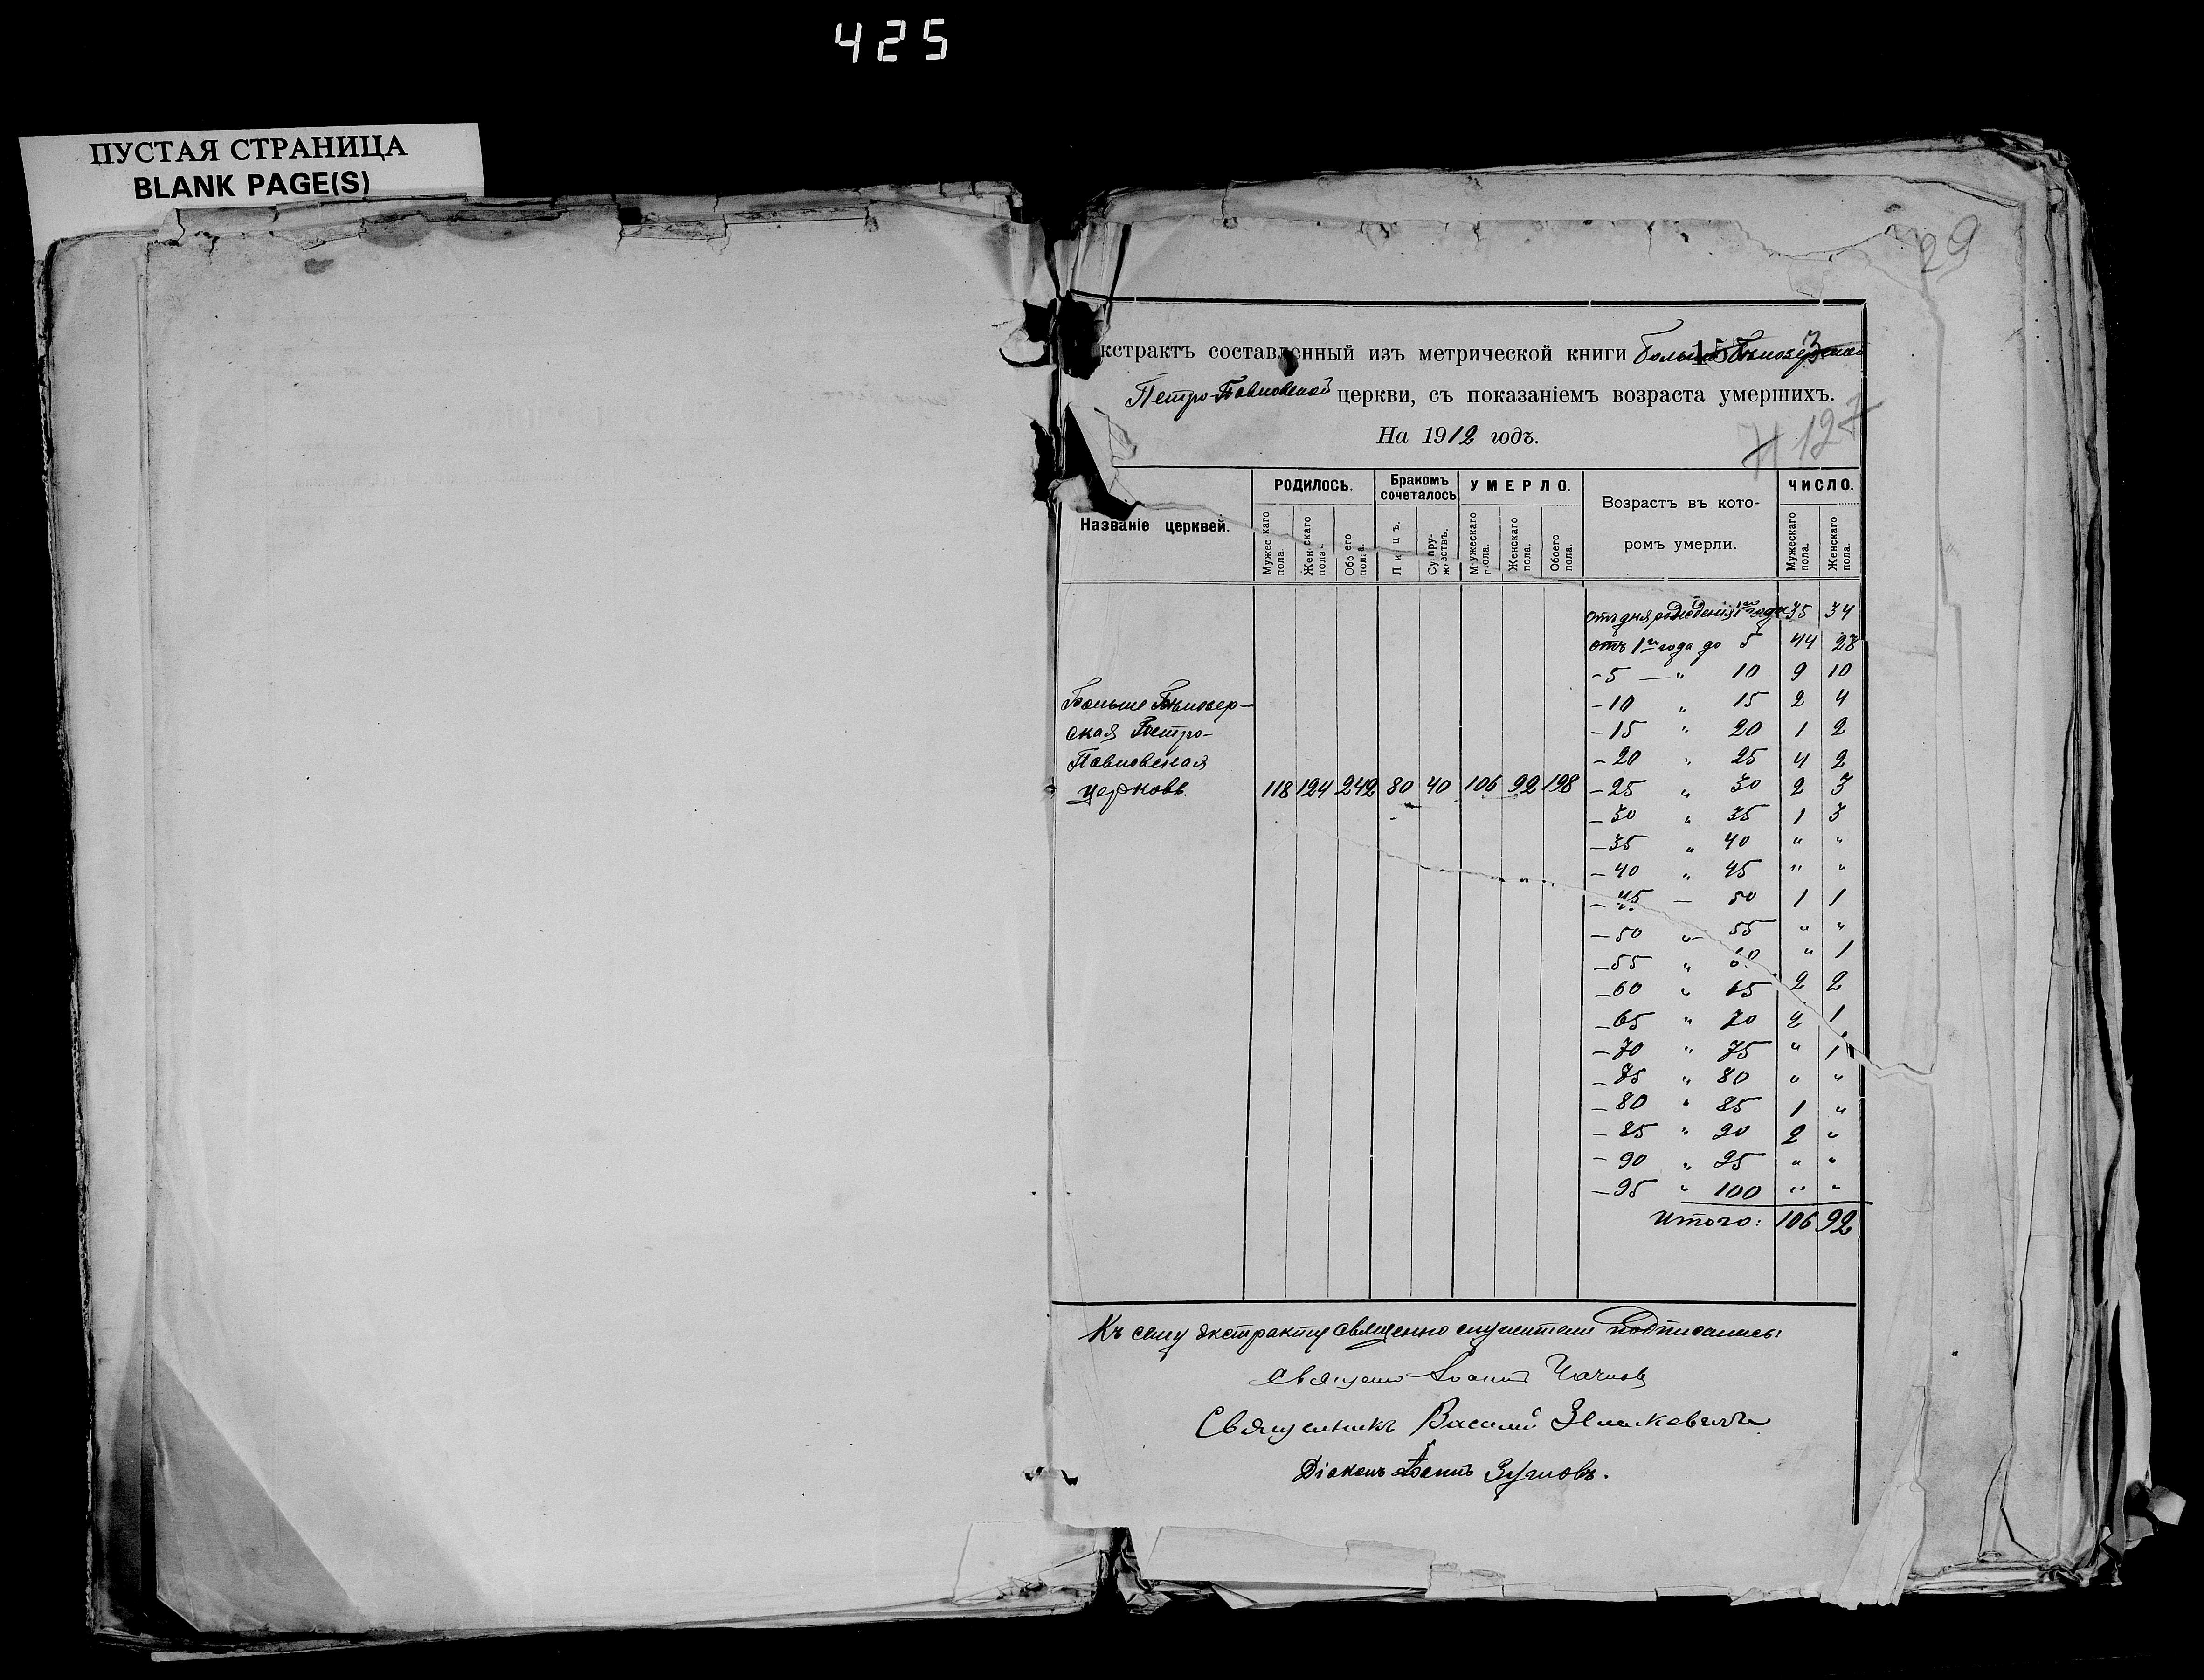 425
ПУСТАЯ СТРАНИЦА
BLANK PAGE(S)
29
кстрактъ составленный изъ метрической книги Больше Бѣлозерской
Петро-Павловской церкви, съ показаніемъ возраста умершихъ.
На 1912 годъ.
127
Названіе церквей. РОДИЛОСЬ. Бракомъ сочеталось УМЕРЛО. Возрастъ въ которомъ умерли. ЧИСЛО.
Мужескаго пола. Женскаго пола. Обоего пола. Лицъ. Супружествъ. Мужескаго пола. Женскаго пола. Обоего пола. Мужескаго пола. Женскаго пола.
отъ дня рожденія 1го года 35 34
отъ 1го года до 5 44 28
-5 — " 10 9 10
Больше Бѣлозер-
-10 " 15 2 4
ская Петро-
-15 " 20 1 2
Павловская
-20 " 25 4 2
церковь. 118 124 242 80 40 106 92 198 -25 " 30 2 3
-30 " 35 1 3
-35 " 40 " "
-40 " 45 " "
-45 — 50 1 1
-50 " 55 " "
-55 " 60 " 1
-60 " 65 2 2
-65 " 70 2 1
-70 " 75 " 1
-75 " 80 " "
-80 " 85 1 "
-85 " 90 2 "
-90 " 95 " "
-95 " 100 " "
Итого: 106 92
Къ сему экстракту священно служители подписались:
Священ Іоаннъ
Священникъ Василій
Діаконъ Іоаннъ